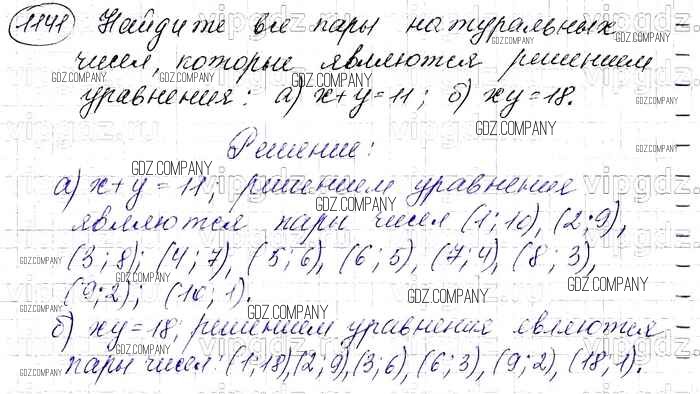 1141 Найдите все пары натуральных
чисел, которые являются решением
уравнения: а) x+y=11; б) xy=18.
Решение:
а) x+y=11; решением уравнения
являются пары чисел (1;10), (2;9),
(3;8); (4;7), (5;6), (6;5), (7;4), (8;3),
(9;2); (10;1).
б) xy=18; решением уравнения являются
пары чисел: (1;18), (2;9), (3;6), (6;3), (9;2), (18;1).